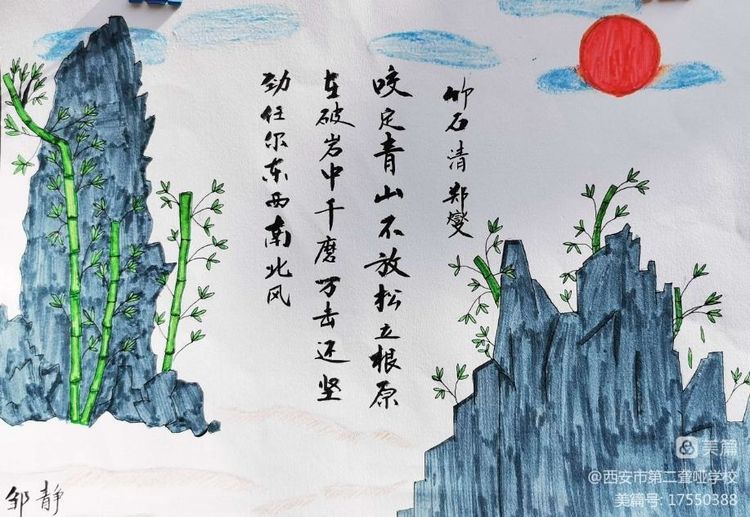 竹石 清 郑燮
咬定青山不放松立根原
在破岩中千磨万击还坚
劲任尔东西南北风
邹静
美篇
@西安市第二聋哑学校
美篇号: 17550388